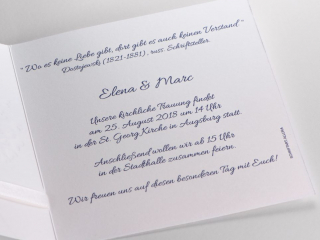 "Wo es keine Liebe gibt, dort gibt es auch keinen Verstand"
Dostojewski (1821-1881), russ. Schriftsteller
Elena & Marc
Unsere kirchliche Trauung findet
am 25. August 2018 um 14 Uhr
in der St. Georg Kirche in Augsburg statt.
Anschließend wollen wir ab 15 Uhr
in der Stadthalle zusammen feiern.
Wir freuen uns auf diesen besonderen Tag mit Euch!